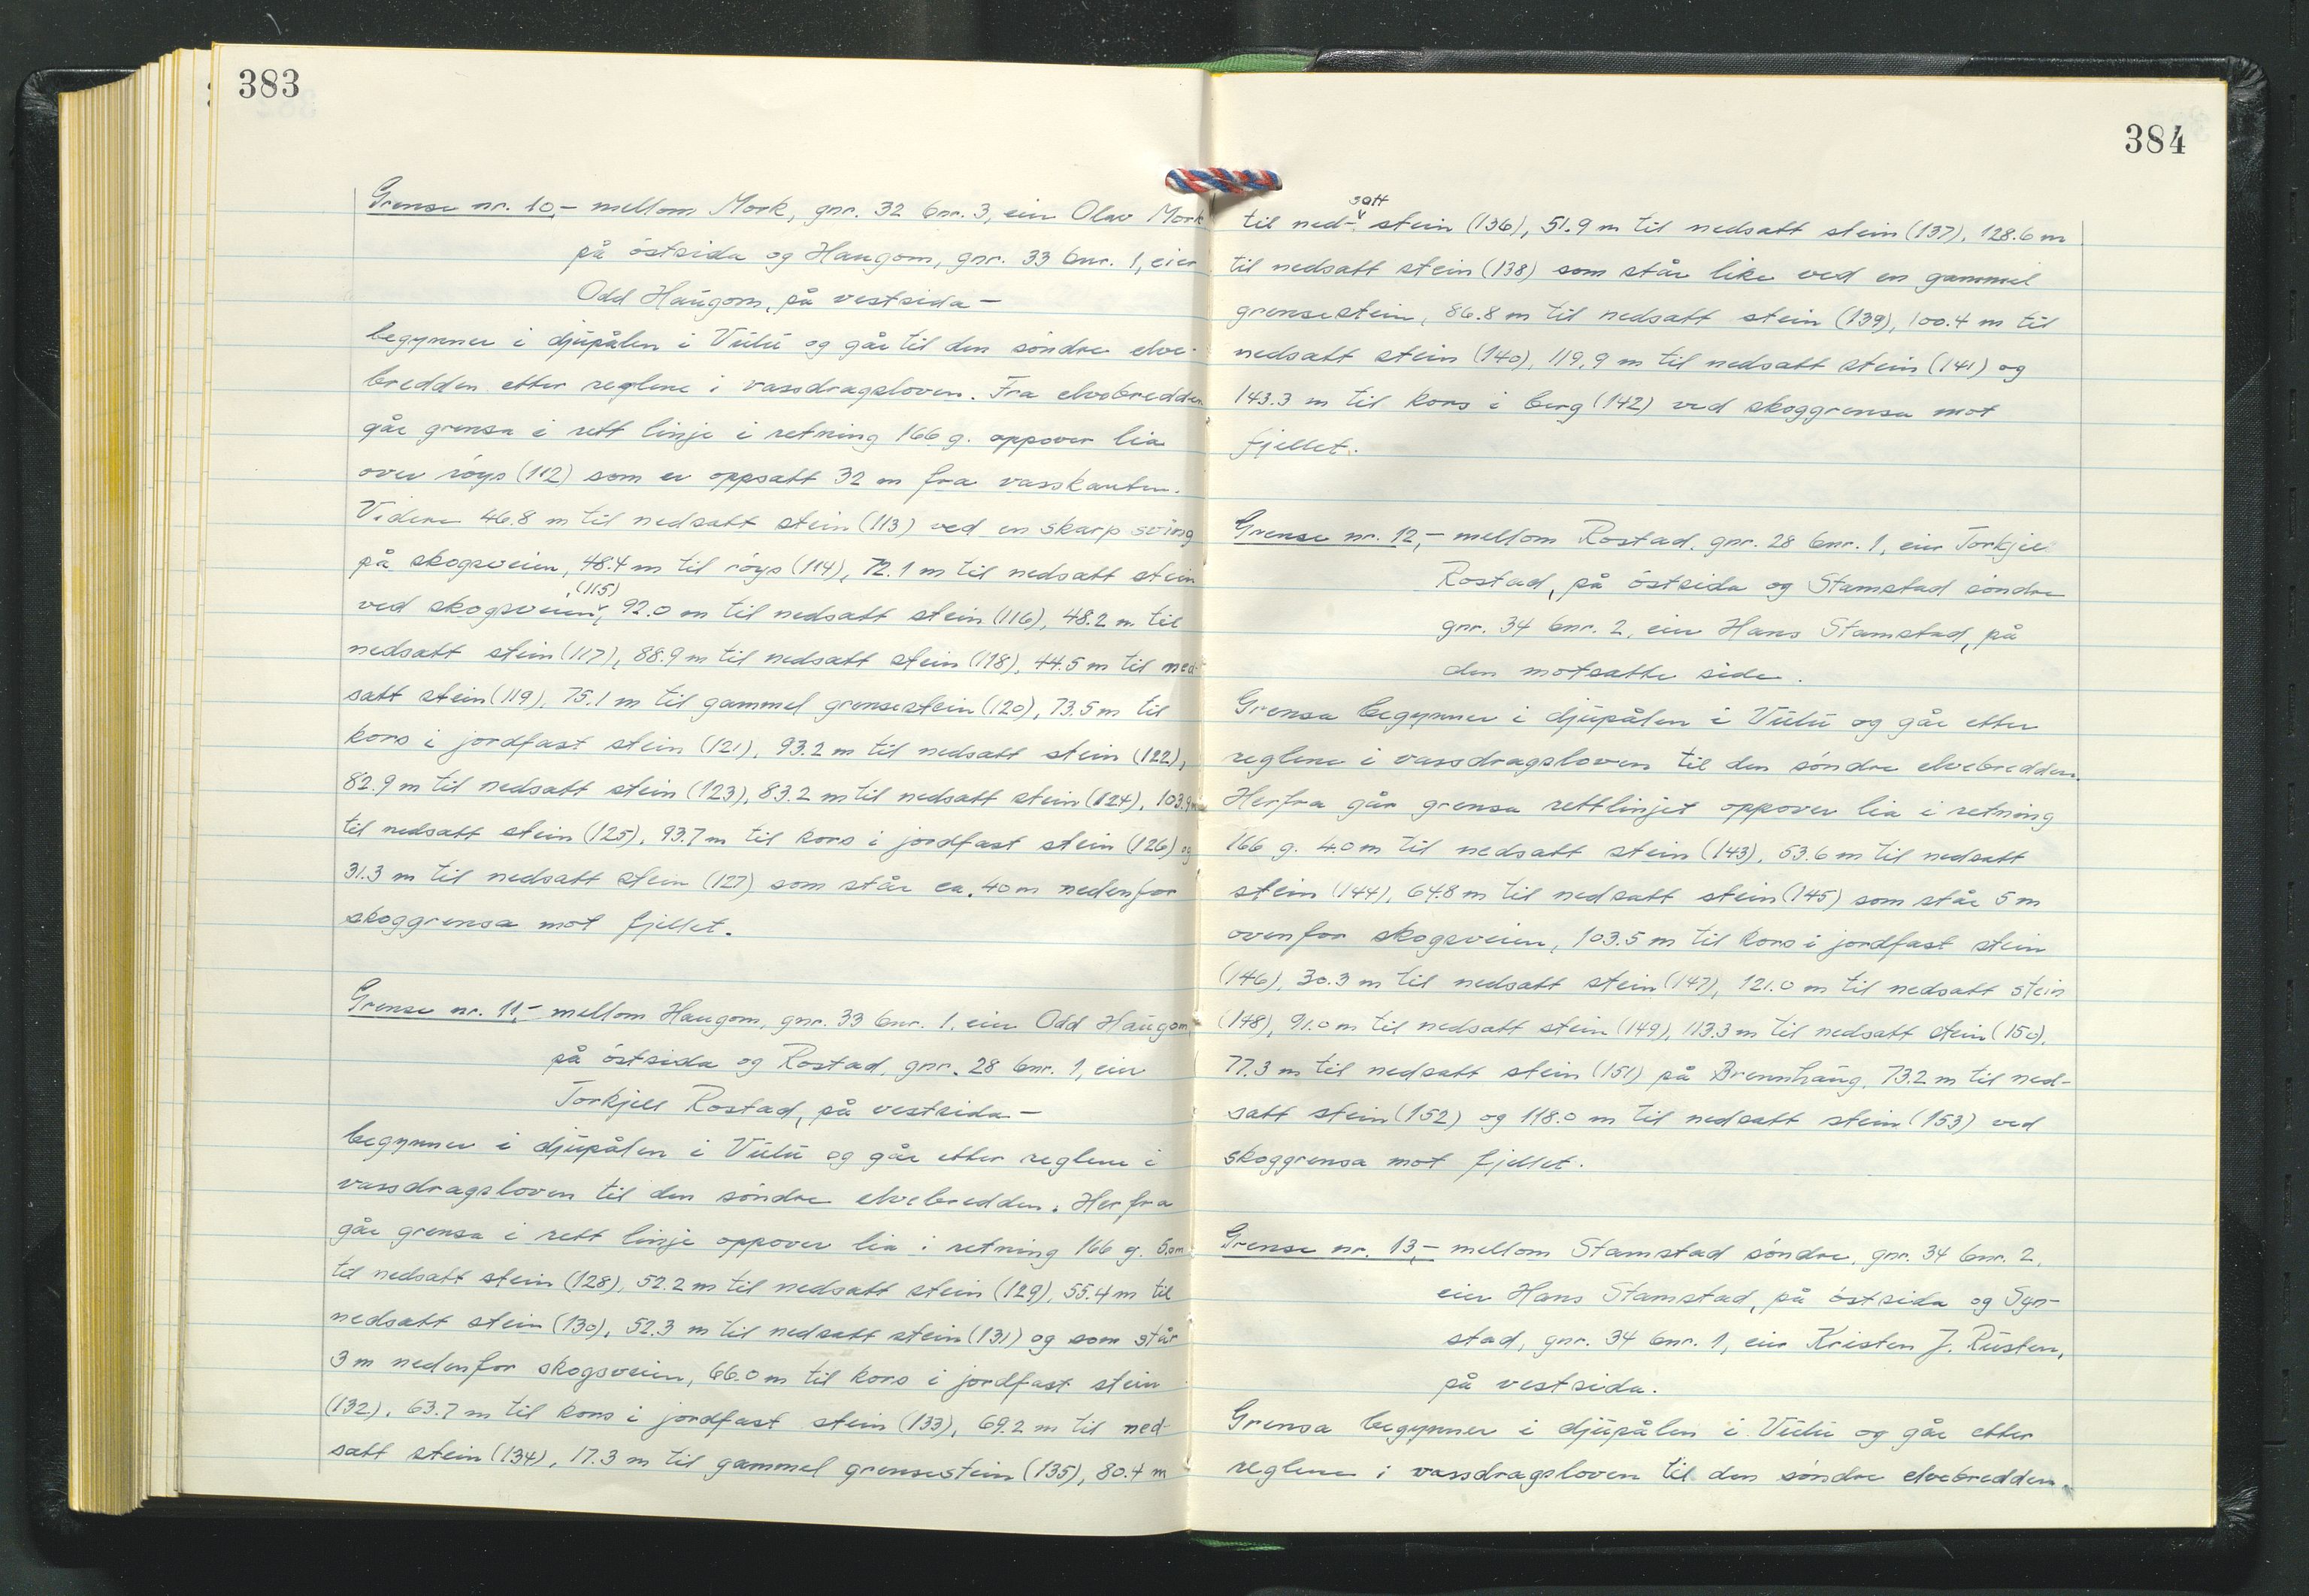 383
Grense nr. 10,- mellom Mork, gnr. 32 bnr. 3, eier Olav Mork
på östsida og Haugom, gnr. 33 bnr. 1, eier
Odd Haugom, på vestsida -
begynner i djupålen i Vulu og går til den söndre elve-
bredden etter reglene i vassdragsloven. Fra elvebredden
går grensa i rett linje i retning 166 g. oppover lia
over röys (112) som er oppsatt 32 m fra vasskanten.
Videre 46.8 m til nedsatt stein (113) ved en skarp sving
på skogsveien, 48.4 m til röys (114), 72.1 m til nedsatt stein
ved skogsveien, (115), 92.0 m til nedsatt stein (116), 48.2 m til
nedsatt stein (117), 88.9 m til nedsatt stein (118), 44.5 m til ned-
satt stein (119), 75.1 m til gammel grensestein (120), 73.5 m til
kors i jordfast stein (121), 93.2 m til nedsatt stein (122),
82.9 m til nedsatt stein (123), 83.2 m til nedsatt stein (124), 103.9 m
til nedsatt stein (125), 93.7 m til kors i jordfast stein (126) og
31.3 m til nedsatt stein (127) som står ca. 40 m nedenfor
skoggrensa mot fjellet.
Grense nr. 11,- mellom Haugom, gnr. 33 bnr. 1, eier Odd Haugom,
på östsida og Rostad, gnr. 28 bnr. 1, eier
Torkjell Rostad, på vestsida -
begynner i djupålen i Vulu og går etter reglene i
vassdragsloven til den söndre elvebredden. Herfra
går grensa i rett linje oppover lia i retning 166 g. 5.0m
til nedsatt stein (128), 52.2 m til nedsatt stein (129), 55.4 m til
nedsatt stein (130), 52.3 m til nedsatt stein (131) og som står
3 m nedenfor skogsveien, 66.0 m til kors i jordfast stein
(132), 63.7 m til kors i jordfast stein (133), 69.2 m til ned-
satt stein (134), 17.3 m til gammel grensestein (135), 80.4 m
384
til ned-satt stein (136), 51.9 m til nedsatt stein (137), 128.6 m
til nedsatt stein (138) som står like ved en gammel
grensestein, 86.8 m til nedsatt stein (139), 100.4 m til
nedsatt stein (140), 119,9 m til nedsatt stein (141) og
143.3 m til kors i berg (142) ved skoggrensa mot
fjellet.
Grense nr. 12,- mellom Rostad, gnr. 28 bnr. 1, eier Torkjell
Rostad, på östsida og Stamstad söndre
gnr. 34 bnr. 2, eier Hans Stamstad, på
den motsatte side.
Grensa begynner i djupålen i Vulu og går etter
reglene i vassdragsloven til den söndre elvebredden.
Herfra går grensa rettlinjet oppover lia i retning
166 g. 4.0 m til nedsatt stein (143), 53.6 m til nedsatt
stein (144), 64.8 m til nedsatt stein (145) som står 5 m
ovenfor skogsveien, 103.5 m til kors i jordfast stein
(146), 30.3 m til nedsatt stein (147), 121.0 m til nedsatt stein
(148), 91.0 m til nedsatt stein (149), 113.3 m til nedsatt stein (150),
77.3 m til nedsatt stein (151) på Brennhaug, 73.2 m til ned-
satt stein (152) og 118.0 m til nedsatt stein (153) ved
skoggrensa mot fjellet.
Grense nr. 13,- mellom Stamstad söndre, gnr. 34 bnr. 2,
eier Hans Stamstad, på östsida og Syr-
stad, gnr. 34 bnr. 1, eier Kristen J. Rusten,
på vestsida.
Grensa begynner i djupålen i Vulu og går etter
reglene i vassdragsloven til den söndre elvebredden.